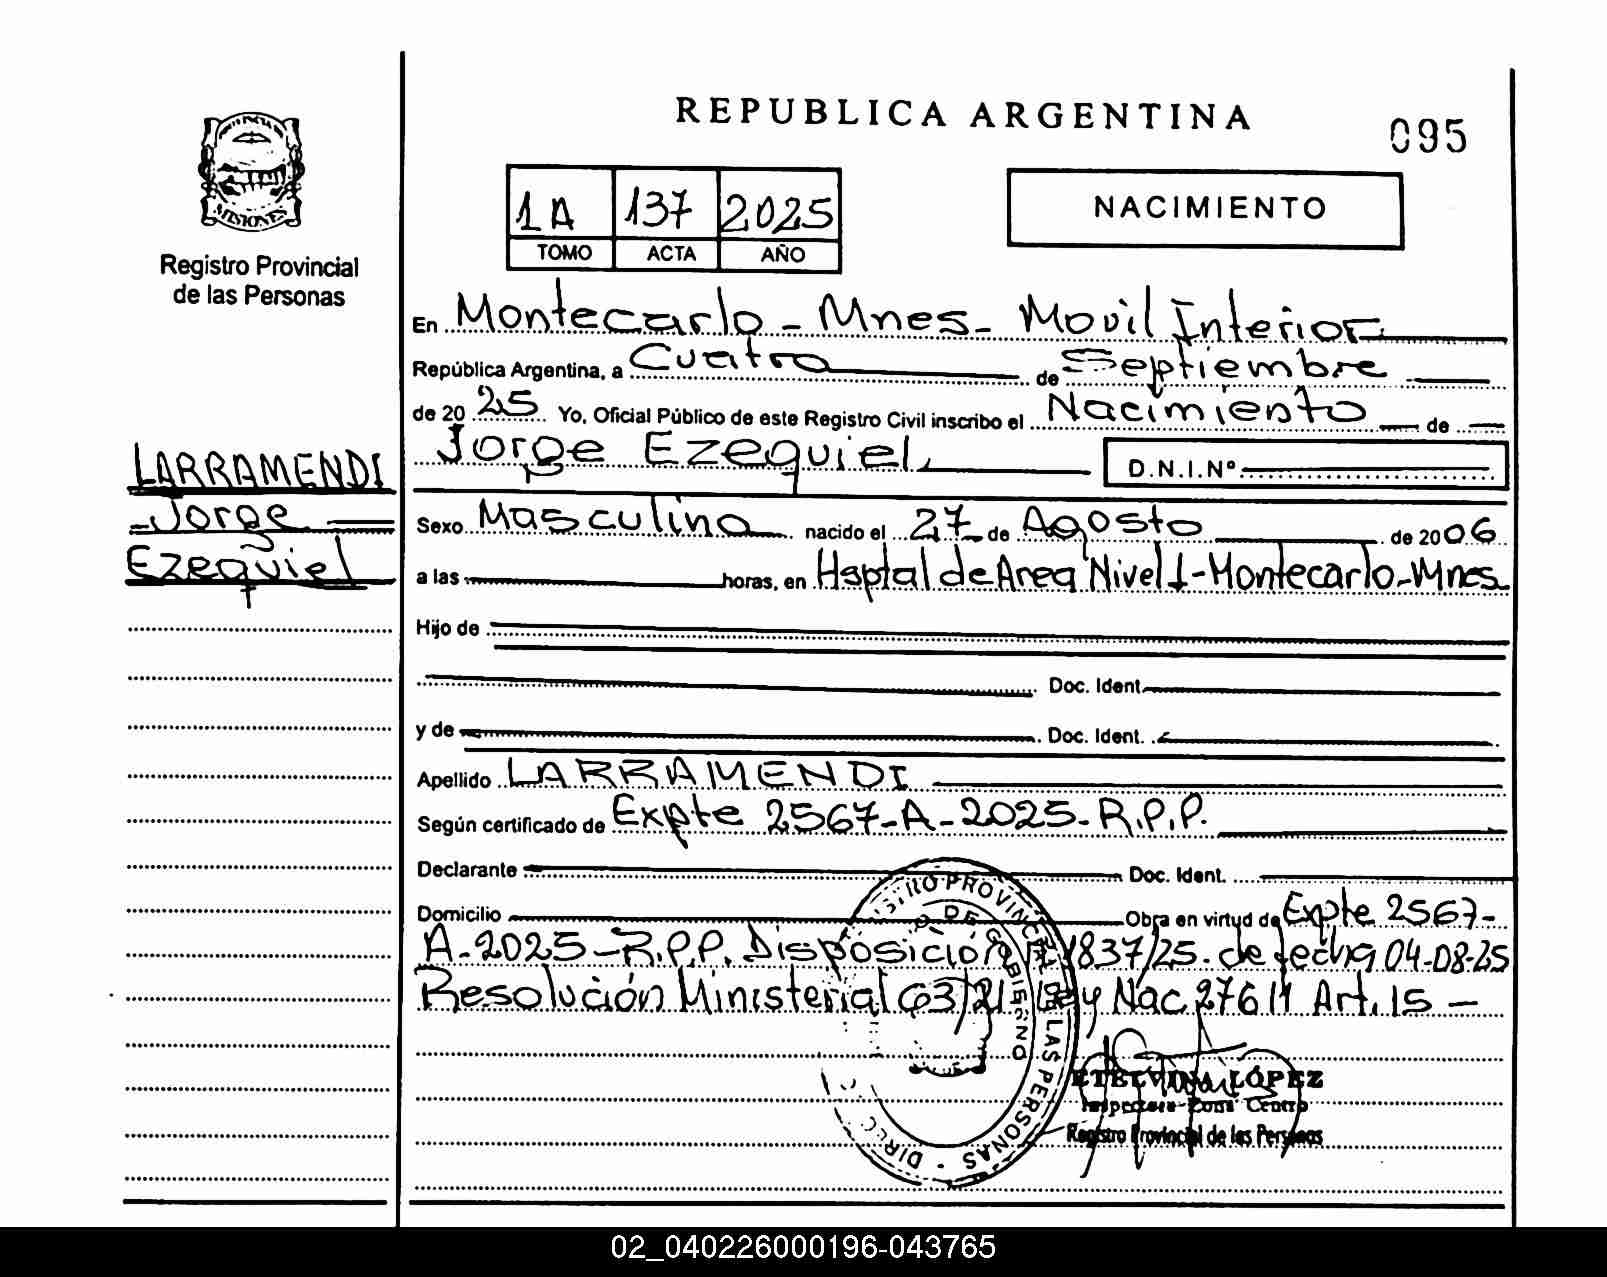 PROVINCIA DE
MISIONES
Registro Provincial
de las Personas
LARRAMENDI
Jorge
Ezequiel
REPUBLICA ARGENTINA
095
1A 137 2025
TOMO ACTA AÑO
NACIMIENTO
En Montecarlo - Mnes - Movil Interior
República Argentina, a Cuatro de Septiembre
de 20 25 Yo, Oficial Público de este Registro Civil inscribo el Nacimiento de
Jorge Ezequiel D.N.I.Nº
Sexo Masculino nacido el 27 de Agosto de 2006
a las horas, en Hsptal de Area Nivel I - Montecarlo - Mnes
Hijo de
Doc. Ident.
y de Doc. Ident.
Apellido LARRAMENDI
Según certificado de Expte 2567-A-2025-R.P.P.
Declarante Doc. Ident.
Domicilio Obra en virtud de Expte 2567-
A-2025-R.P.P. Disposición 1837/25. de fecha 04-08-25
Resolución Ministerial 63/21 Ley Nac 27611 Art. 15 -
PROVINCIAL DE LAS PERSONAS
DE GOBIERNO
ETELVINA LÓPEZ
Inspectora Zona Centro
Registro Provincial de las Personas
02_040226000196-043765